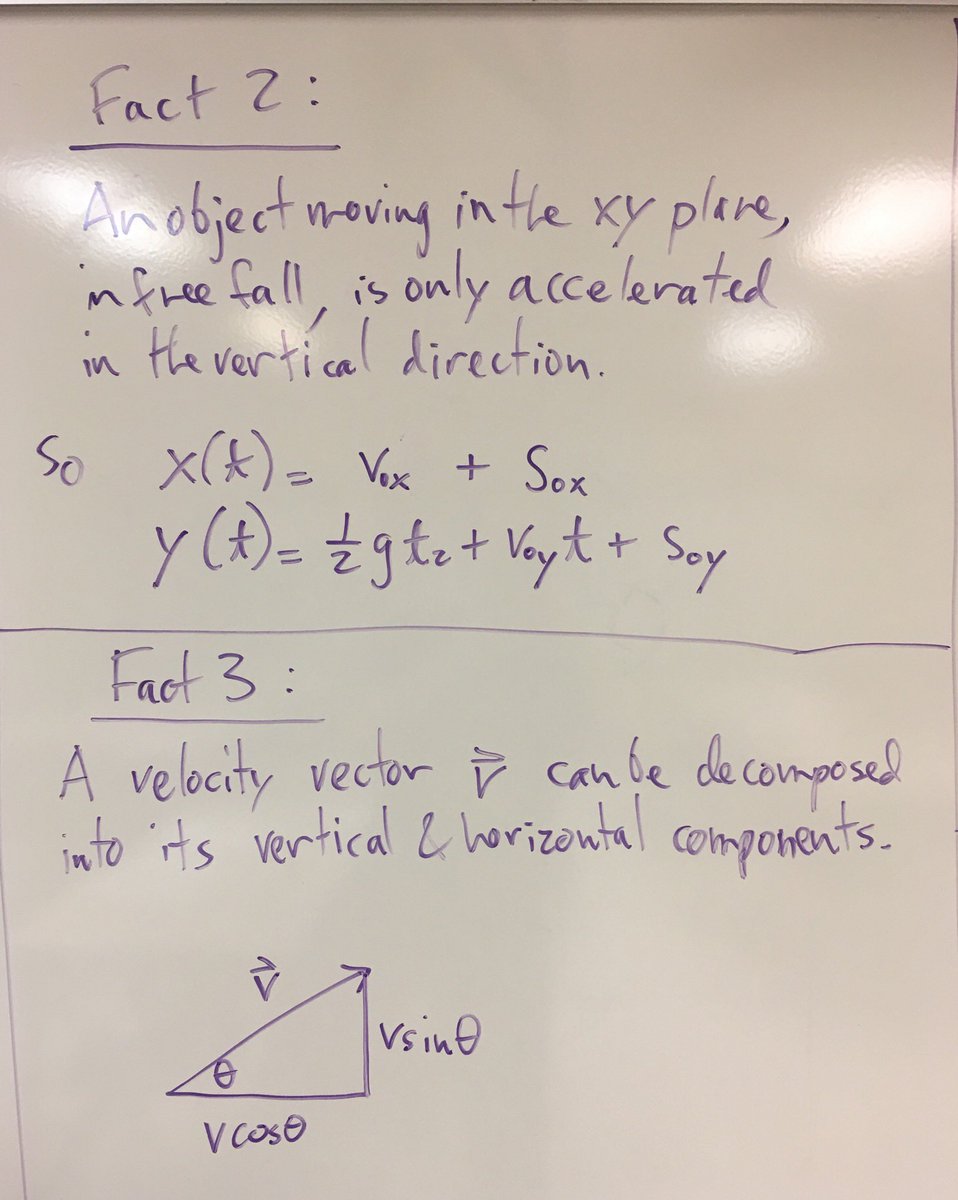 Fact 2:
An object moving in the xy plane,
in free fall, is only accelerated
in the vertical direction.
So x(t) = v₀ₓ + S₀ₓ
y(t) = ½gt₂ + v₀yt + s₀y
Fact 3:
A velocity vector v⃗ can be decomposed
into its vertical & horizontal components.
v⃗
vsinθ
θ
vcosθ